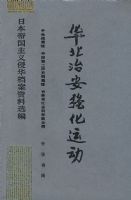 华北治安强化运动
日本帝国主义侵华档案资料选编
中央档案馆 中国第二历史档案馆 吉林省社会科学院合编
中华书局